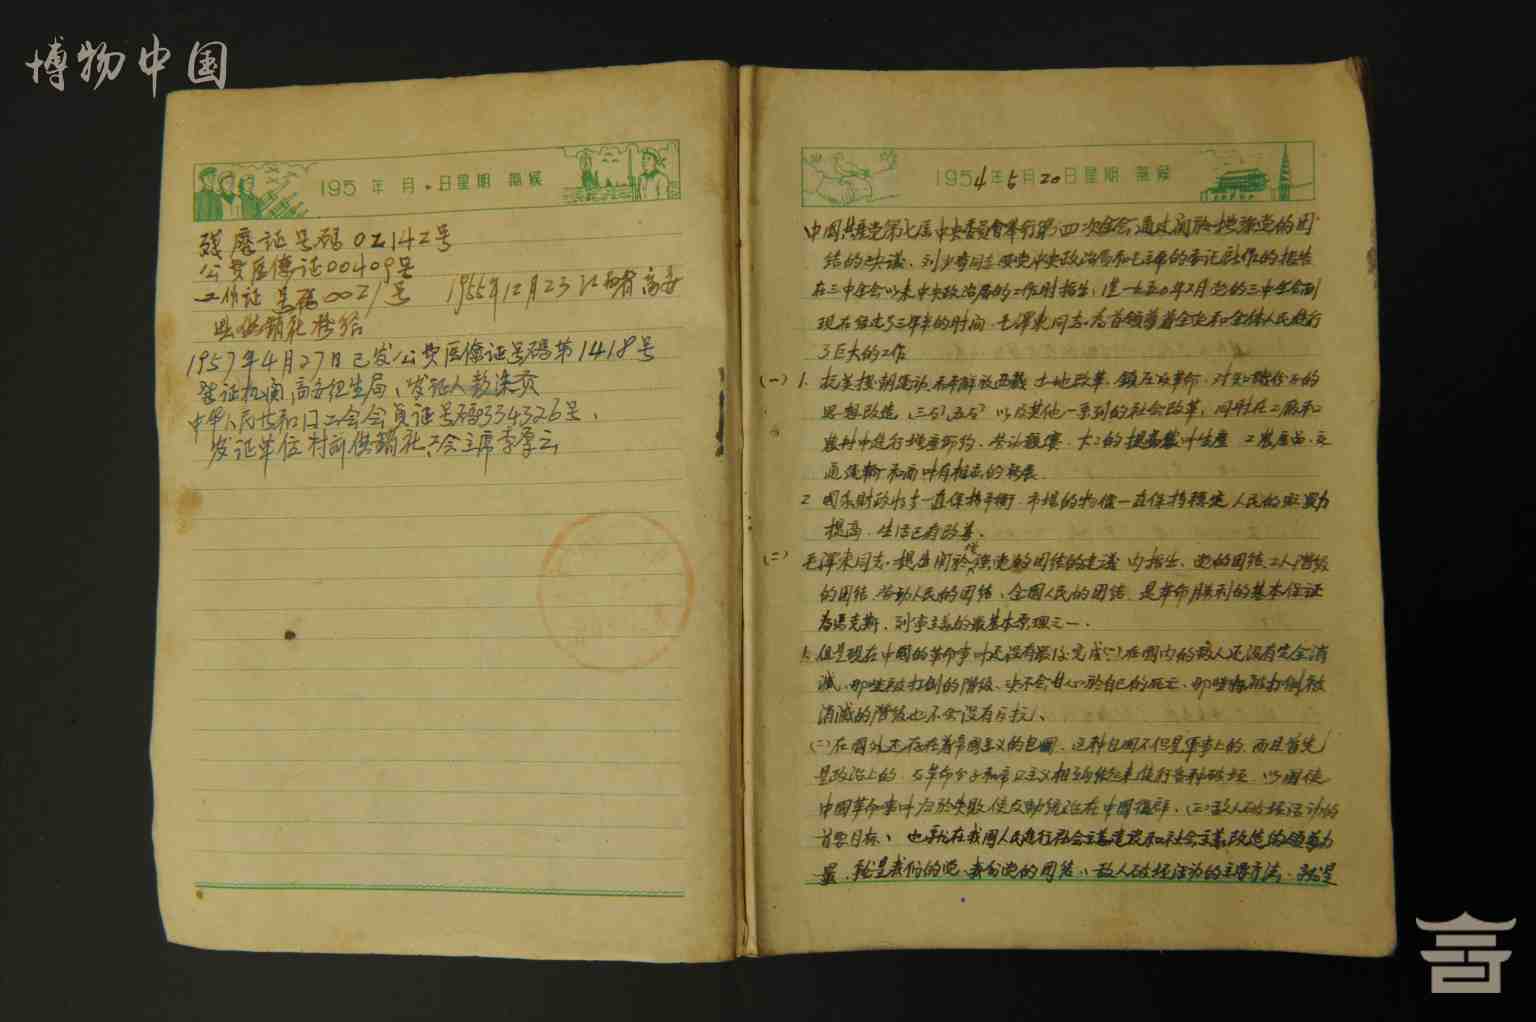 博物中国
195 年 月 日星期 气候
残废证号码02142号
公费医疗证00409号
工作证 号码0021号 1955年12月23江西省高安
县供销社发给
1957年4月27日已发公费医疗证号码第1418号
发证机关、高安卫生局、发证人
中华人民共和国工会会员证号码334326号、
发证单位村前供销社工会主席李厚云
1954年5月20日星期 气候
中国共产党第七届中央委员会举行第四次全会通过关於增强党的团
结的决议、刘少奇同志受党中央政治局和毛主席的委託所作的报告
在三中全会以来中央政治局的工作时指出，从一九五〇年2月党的三中全会到
现在经过了三年半的时间 毛泽东同志为首领导着全党和全体人民进行
了巨大的工作
(一) 1. 抗美援朝运动 和平解放西藏 土地改革、镇压反革命、对知识份子的
思想改造，三反五反 以及其他一系列的社会改革，同时在工厂和
农村中进行增产节约、劳动竞赛、大大的提高农业生产 工农产品、交
通运输和商业有相应的发展
2 国家财政收支一直保持平衡 市场的物价一直保持稳定 人民的购买力
提高、生活已有改善、
(二) 毛泽东同志、提出关於增强党的团结的建议 内指出、党的团结、工人阶级
的团结 劳动人民的团结、全国人民的团结 是革命胜利的基本保证
为马克斯、列宁主义的最基本原理之一、
1. 但是现在中国的革命事业还没有最后完成(一)在国内的敌人还没有完全消
灭、那些被打倒的阶级、决不会甘心於自己的死亡、那些将被打倒被
消灭的阶级也不会没有反抗、
(二)在国外还存在着帝国主义的包围、这种包围不但是军事上的、而且首先
是政治上的、反革命分子和帝国主义相互勾结起来进行各种破坏 以图使
中国革命事业归於失败 使反动统治在中国复辟、(三)敌人破坏活动的
首要目标、也就在我国人民进行社会主义建设和社会主义改造的领导力
量、就是我们的党、我们党的团结、敌人破坏活动的主要方法、就是